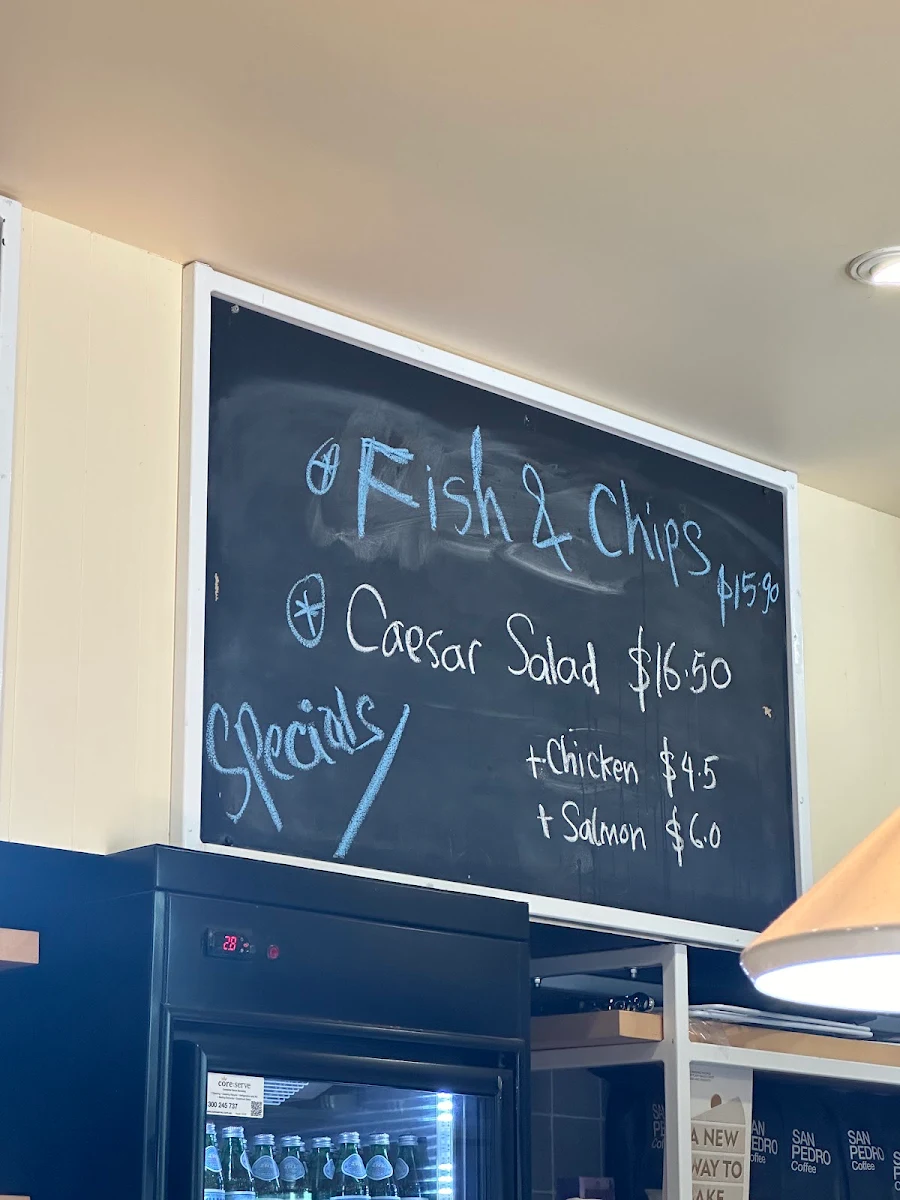 Fish & Chips
$15.90
Caesar Salad $16.50
Specials
+Chicken $4.5
+ Salmon $6.0
2.8
core-serve
300 245 737
A NEW
WAY TO
SAN
PEDRO
Coffee
SAN
PEDRO
Coffee